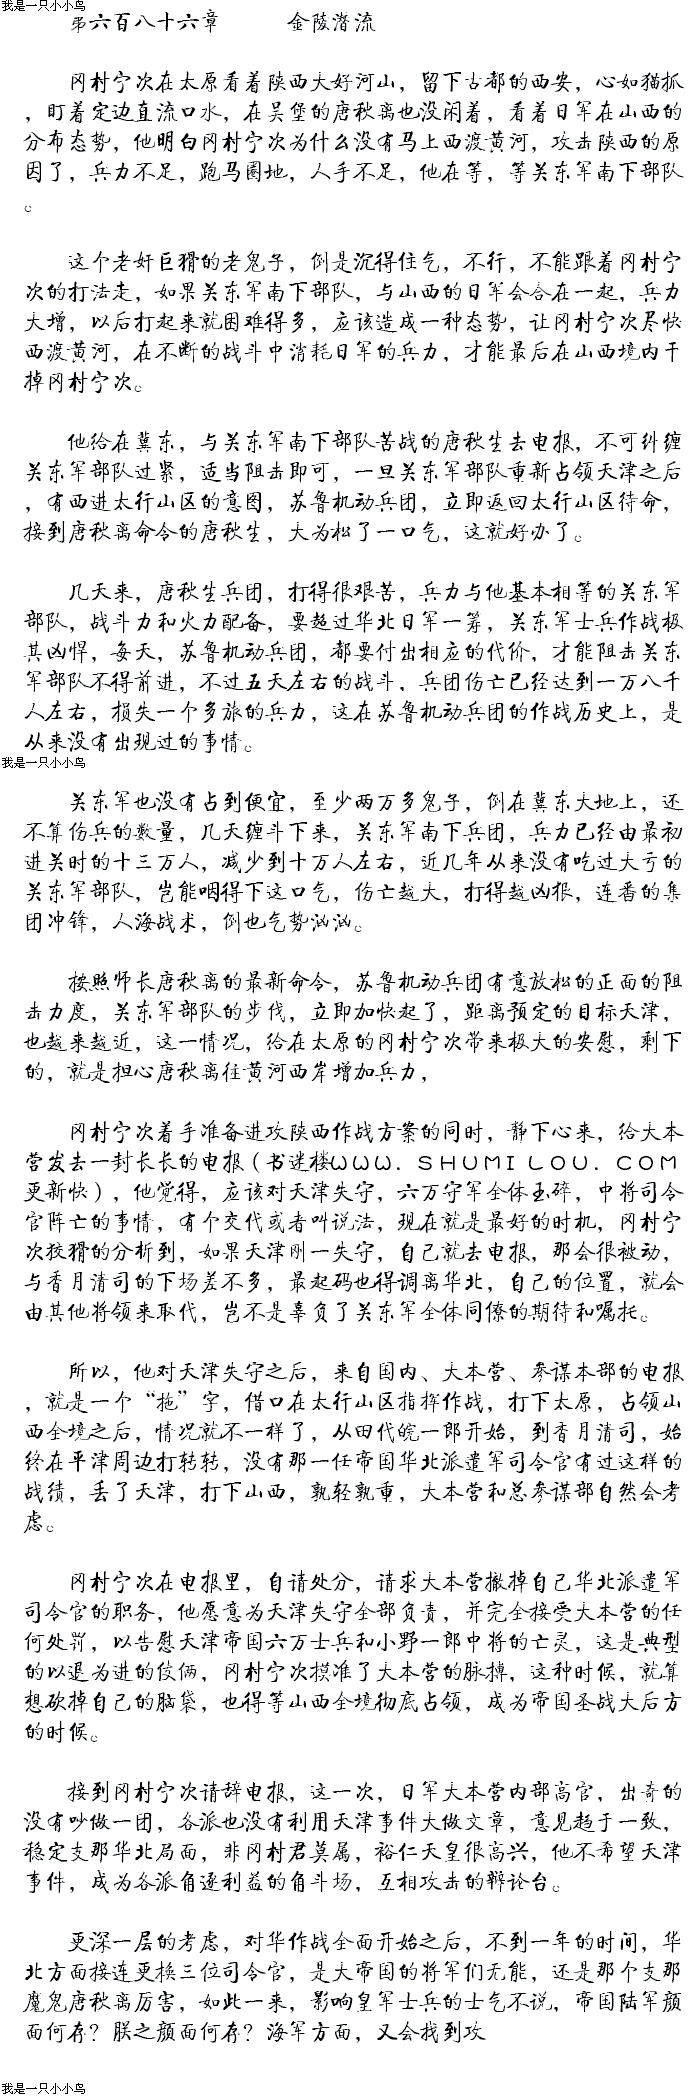 我是一只小小鸟
第六百八十六章 金陵潜流
冈村宁次在太原看着陕西大好河山，留下古都的西安，心如猫抓
，盯着定边直流口水，在吴堡的唐秋离也没闲着，看着日军在山西的
分布态势，他明白冈村宁次为什么没有马上西渡黄河，攻击陕西的原
因了，兵力不足，跑马圈地，人手不足，他在等，等关东军南下部队
。
这个老奸巨猾的老鬼子，倒是沉得住气，不行，不能跟着冈村宁
次的打法走，如果关东军南下部队，与山西的日军会合在一起，兵力
大增，以后打起来就困难得多，应该造成一种态势，让冈村宁次尽快
西渡黄河，在不断的战斗中消耗日军的兵力，才能最后在山西境内干
掉冈村宁次。
他给在冀东，与关东军南下部队苦战的唐秋生去电报，不可纠缠
关东军部队过紧，适当阻击即可，一旦关东军部队重新占领天津之后
，有西进太行山区的意图，苏鲁机动兵团，立即返回太行山区待命，
接到唐秋离命令的唐秋生，大为松了一口气，这就好办了。
几天来，唐秋生兵团，打得很艰苦，兵力与他基本相等的关东军
部队，战斗力和火力配备，要超过华北日军一筹，关东军士兵作战极
其凶悍，每天，苏鲁机动兵团，都要付出相应的代价，才能阻击关东
军部队不得前进，不过五天左右的战斗，兵团伤亡已经达到一万八千
人左右，损失一个多旅的兵力，这在苏鲁机动兵团的作战历史上，是
从来没有出现过的事情。
我是一只小小鸟
关东军也没有占到便宜，至少两万多鬼子，倒在冀东大地上，还
不算伤兵的数量，几天缠斗下来，关东军南下兵团，兵力已经由最初
进关时的十三万人，减少到十万人左右，近几年从来没有吃过大亏的
关东军部队，岂能咽得下这口气，伤亡越大，打得越凶狠，连番的集
团冲锋，人海战术，倒也气势汹汹。
按照师长唐秋离的最新命令，苏鲁机动兵团有意放松的正面的阻
击力度，关东军部队的步伐，立即加快起了，距离预定的目标天津，
也越来越近，这一情况，给在太原的冈村宁次带来极大的安慰，剩下
的，就是担心唐秋离往黄河西岸增加兵力，
冈村宁次着手准备进攻陕西作战方案的同时，静下心来，给大本
营发去一封长长的电报（书迷楼ＷＷＷ．ＳＨＵＭＩＬＯＵ．ＣＯＭ
更新快），他觉得，应该对天津失守，六万守军全体玉碎，中将司令
官阵亡的事情，有个交代或者叫说法，现在就是最好的时机，冈村宁
次狡猾的分析到，如果天津刚一失守，自己就去电报，那会很被动，
与香月清司的下场差不多，最起码也得调离华北，自己的位置，就会
由其他将领来取代，岂不是辜负了关东军全体同僚的期待和嘱托。
所以，他对天津失守之后，来自国内、大本营、参谋本部的电报
，就是一个“拖”字，借口在太行山区指挥作战，打下太原，占领山
西全境之后，情况就不一样了，从田代皖一郎开始，到香月清司，始
终在平津周边打转转，没有那一任帝国华北派遣军司令官有过这样的
战绩，丢了天津，打下山西，孰轻孰重，大本营和总参谋部自然会考
虑。
冈村宁次在电报里，自请处分，请求大本营撤掉自己华北派遣军
司令官的职务，他愿意为天津失守全部负责，并完全接受大本营的任
何处罚，以告慰天津帝国六万士兵和小野一郎中将的亡灵，这是典型
的以退为进的伎俩，冈村宁次摸准了大本营的脉搏，这种时候，就算
想砍掉自己的脑袋，也得等山西全境彻底占领，成为帝国圣战大后方
的时候。
接到冈村宁次请辞电报，这一次，日军大本营内部高官，出奇的
没有吵做一团，各派也没有利用天津事件大做文章，意见趋于一致，
稳定支那华北局面，非冈村君莫属，裕仁天皇很高兴，他不希望天津
事件，成为各派角逐利益的角斗场，互相攻击的辩论台。
更深一层的考虑，对华作战全面开始之后，不到一年的时间，华
北方面接连更换三位司令官，是大帝国的将军们无能，还是那个支那
魔鬼唐秋离厉害，如此一来，影响皇军士兵的士气不说，帝国陆军颜
面何存？朕之颜面何存？海军方面，又会找到攻
我是一只小小鸟